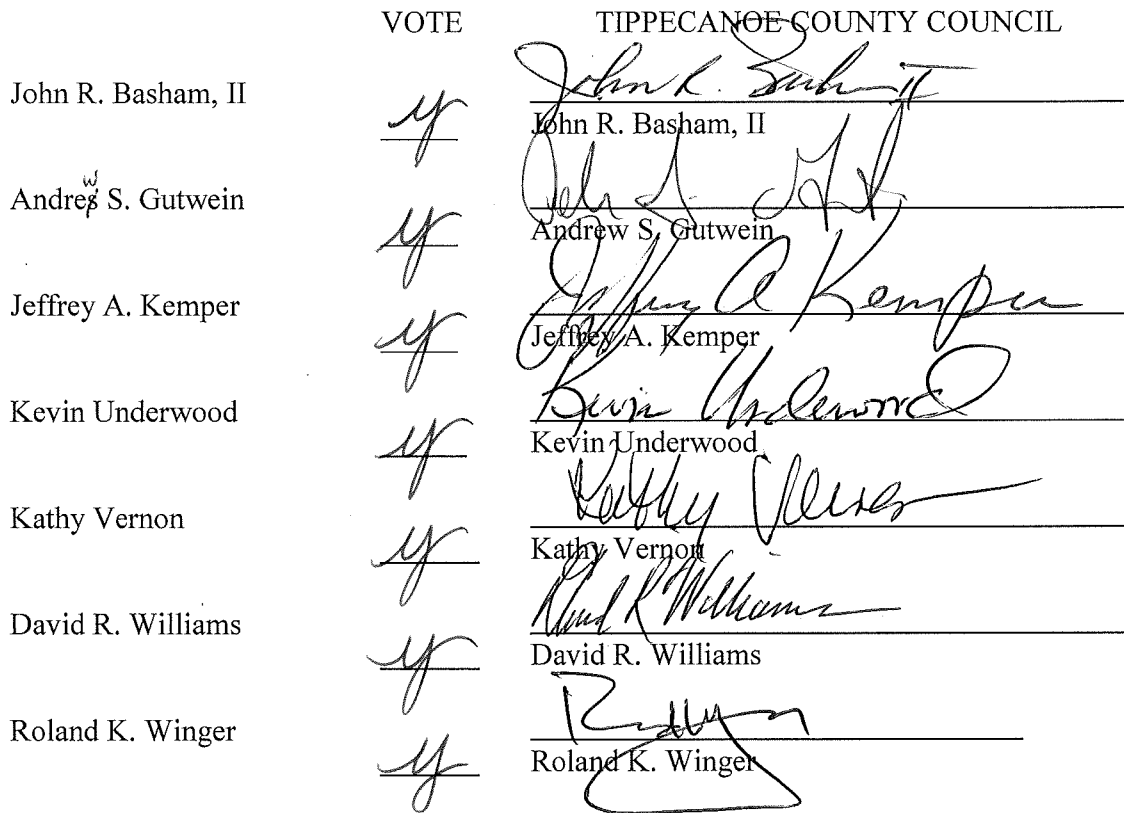 VOTE TIPPECANOE COUNTY COUNCIL
John R. Basham, II y John R. Basham II
John R. Basham, II
Andres S. Gutwein y
w
Andrew S. Gutwein
Jeffrey A. Kemper y Jeffrey A Kemper
Jeffrey A. Kemper
Kevin Underwood y Kevin Underwood
Kevin Underwood
Kathy Vernon y Kathy Vernon
Kathy Vernon
David R. Williams y David R Williams
David R. Williams
Roland K. Winger y
Roland K. Winger